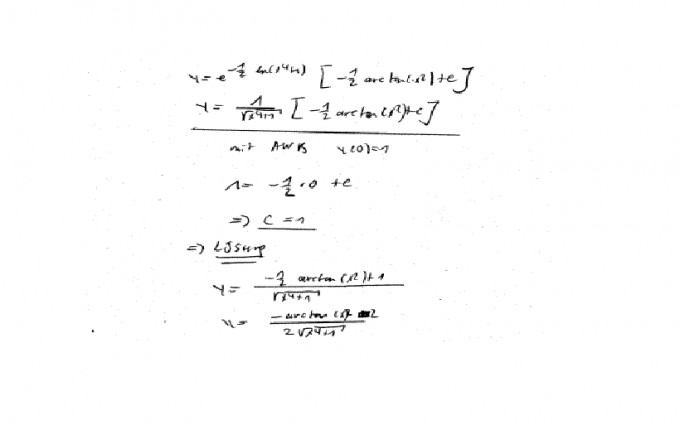 y = e^{-\frac{1}{2} ln(x^4+1)} [ -\frac{1}{2} arctan(x^2) + c ]
y = \frac{1}{\sqrt{x^4+1}} [ -\frac{1}{2} arctan(x^2) + c ]
mit AWB y(0)=1
1 = -\frac{1}{2} \cdot 0 + c
=> c = 1
=> Lösung
y = \frac{-\frac{1}{2} arctan(x^2) + 1}{\sqrt{x^4+1}}